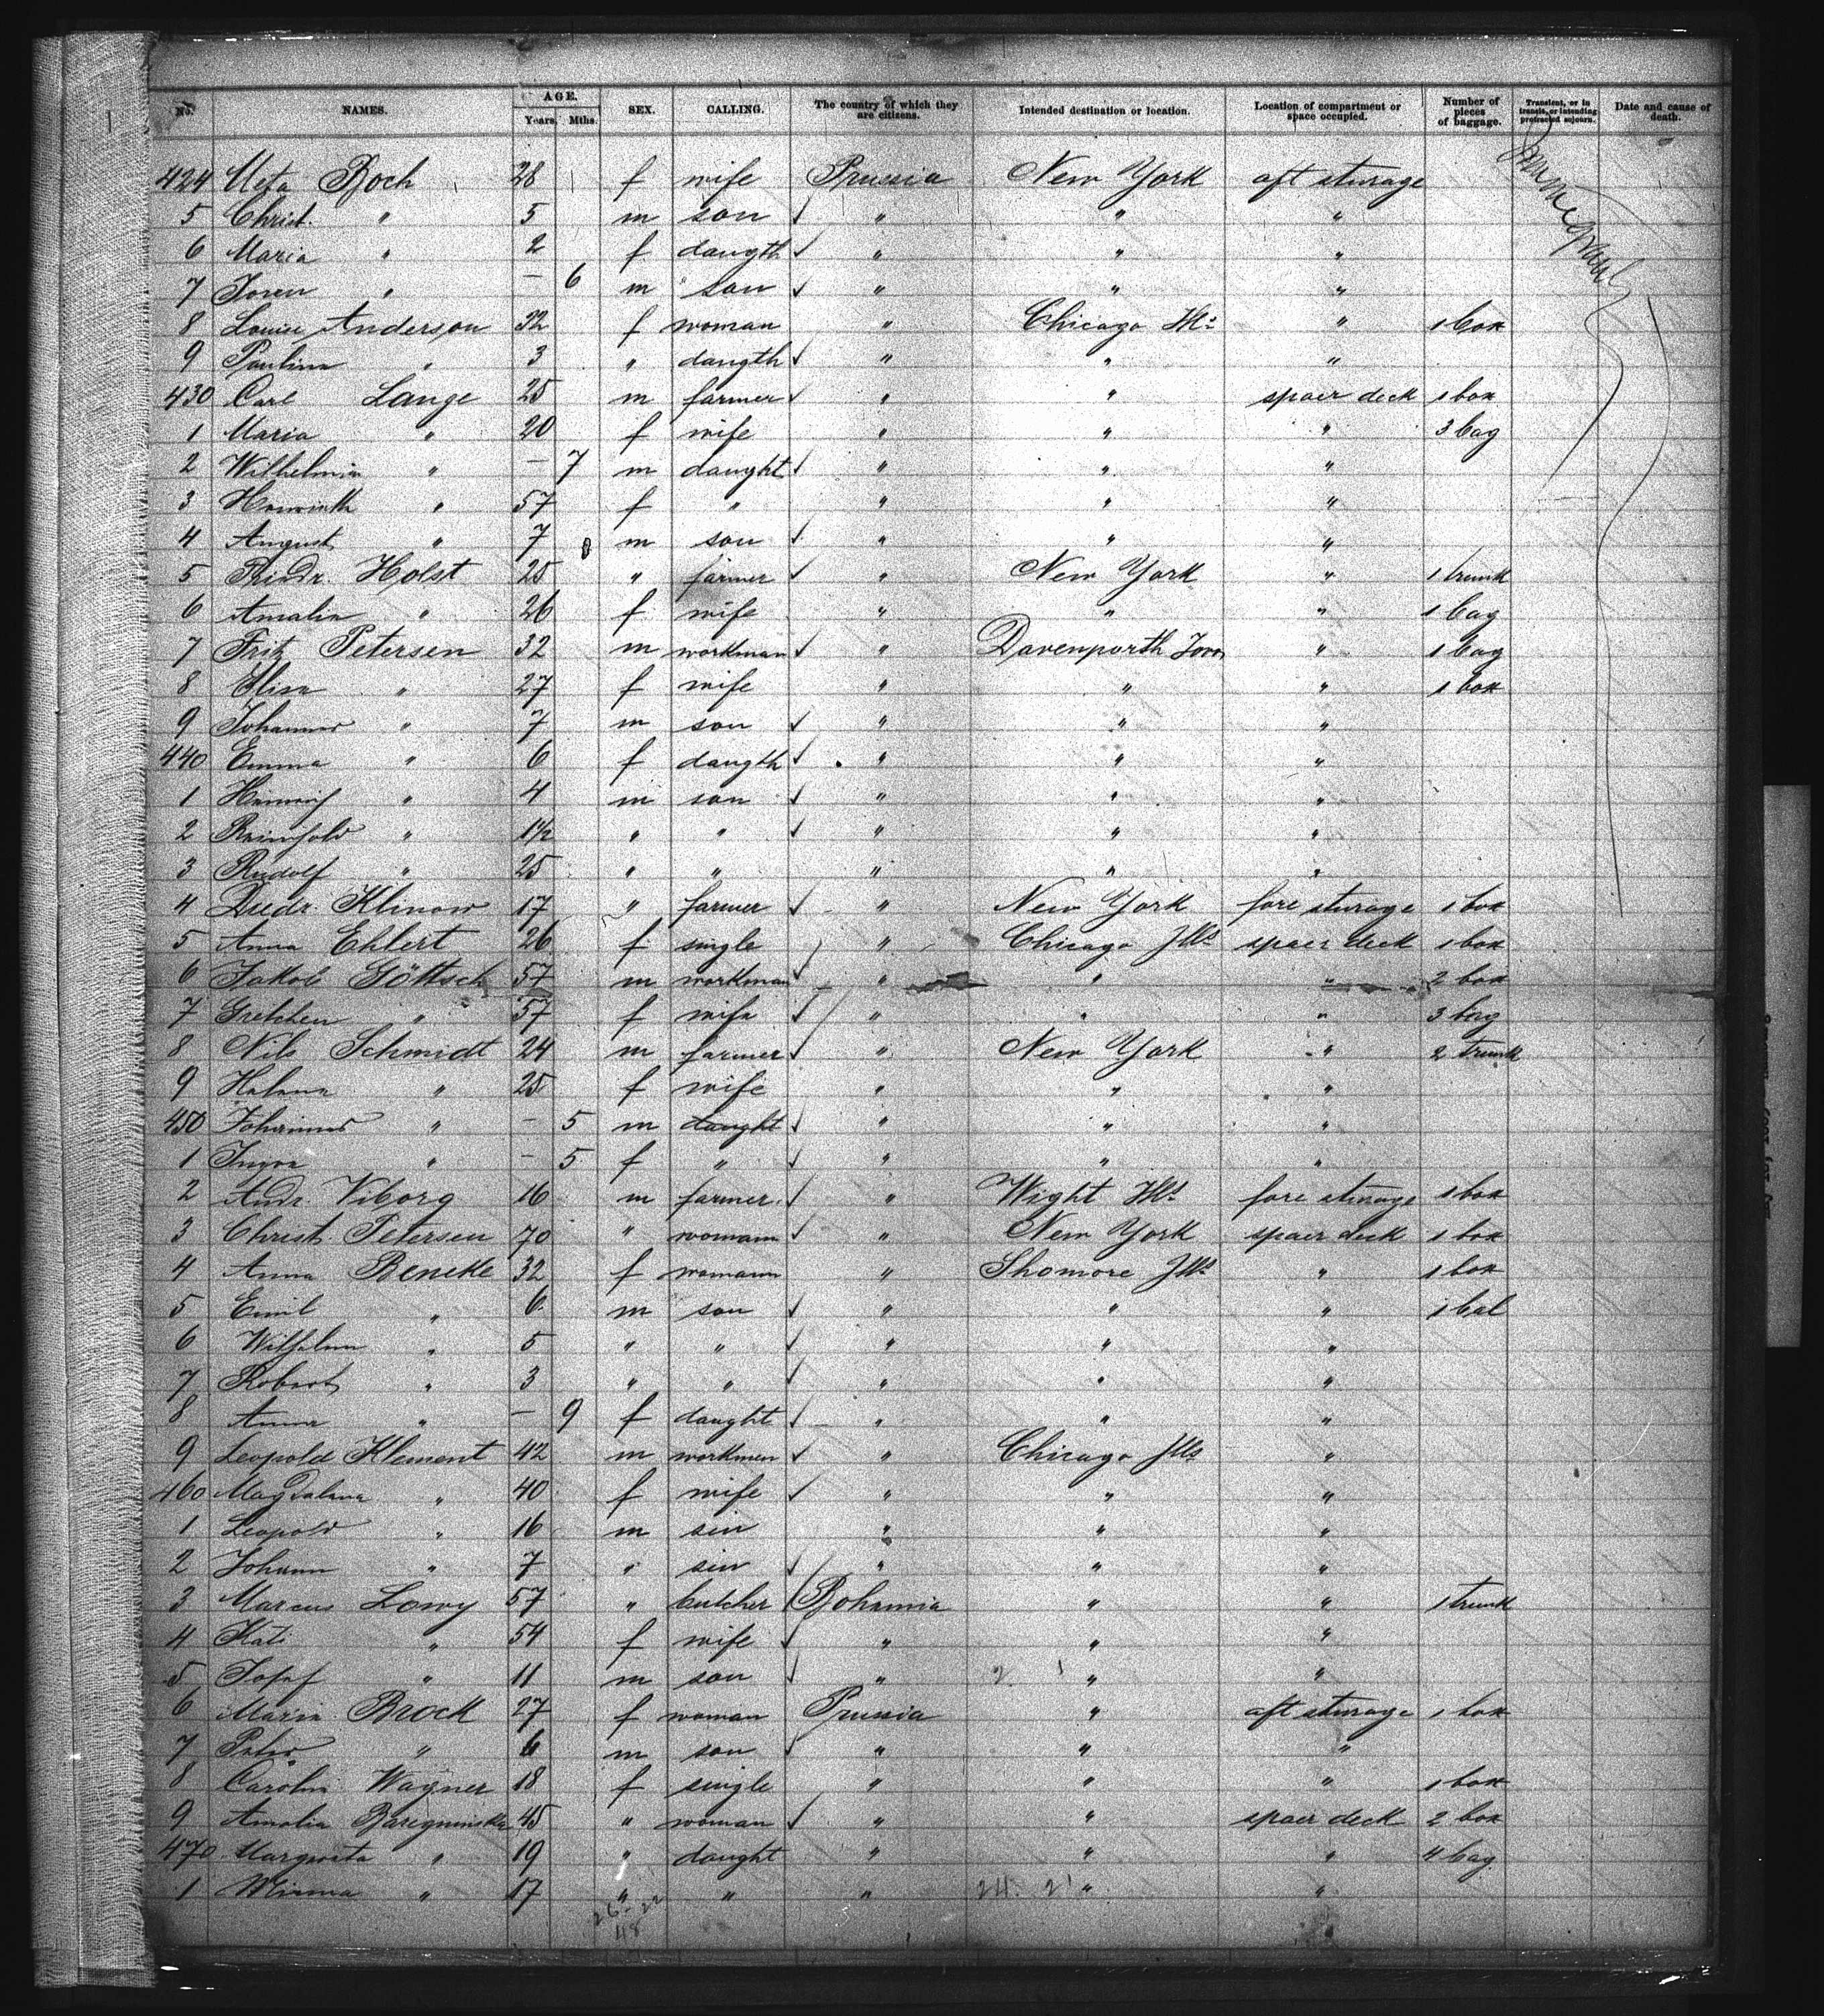 No. NAMES. AGE. Years, Mths. SEX. CALLING. The country of which they are citizens. Intended destination or location. Location of compartment or space occupied. Number of pieces of baggage. Transient, or in transit, or intending protracted sojourn. Date and cause of death.
424 Meta Boch 28 f wife Prussia New York aft sturage
5 Christ. " 5 m son " " "
6 Maria " 2 f daugth " " "
7 Soren " – 6 m son " " "
8 Louise Anderson 32 f woman " Chicago Ills "  1 box
9 Paulina " 3 " daugth " " "
430 Carl Lange 25 m farmer " " spaer deck 1 box
1 Maria " 20 f wife " " " 3 bag
2 Wilhelmin " – 7 m daught " " "
3 " 57 f " " " "
4 August " 7 m son " " "
5 Friedr. Holst 25 " farmer " New York " 1 trunk
6 Amalia " 26 f wife " " " 1 bag
7 Fritz Petersen 32 m workman " Davenporth Iova " 1 bag
8 Elisa " 27 f wife " " " 1 box
9 Johannes " 7 m son " " "
440 Emma " 6 f daugth " " "
1 Heinrich " 4 m son " " "
2 Reinhold " 1½ " " " " "
3 Rudolf " 25 " " " " "
4 Diedr. Klinow 17 " farmer " New York fore sturage 1 box
5 Anna Ehlert 26 f single " Chicago Ills spaer deck 1 box
6 Jakob Göttsch 57 m workman " " " 2 box
7 Gretchen " 57 f wife " " " 3 bag
8 Nils Schmidt 24 m farmer " New York " 2 trunk
9 Helena " 25 f wife " " "
450 Johannes " – 5 m daught " " "
1 " – 5 f " " " "
2 Andr. Viborg 16 m farmer " Wight Ills fore sturage 1 box
3 Christ. Petersen 70 " womann " New York spaer deck 1 box
4 Anna Beneke 32 f womann " Shomore Ills " 1 box
5 Emil " 6 m son " " " 1 bal
6 Wilhelm " 5 " " " " "
7 Robert " 3 " " " " "
8 Anna " – 9 f daught " " "
9 Leopold Klement 42 m workmen " Chicago Ills "
460 Magdalena " 40 f wife " " "
1 Leopold " 16 m sin " " "
2 Johann " 7 " sin " " "
3 Marcus Lowy 57 " butcher Bohemia " " 1 trunk
4 Kati " 54 f wife " " "
5 Josef " 11 m son " " "
6 Maria Brock 27 f woman Prussia " aft sturage 1 box
7 Peter " 6 m son " " "
8 Carolin Wagner 18 f single " " " 1 box
9 Amalia 45 " woman " " spaer deck 2 box
470 Margreata " 19 " daught " " " 4 bag
1 Minna " 17 " " " " "
26 22
48